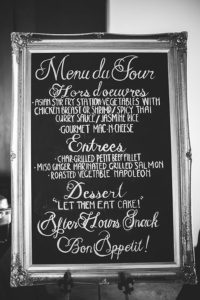 Menu du Jour
Hors d'oeuvres
- ASIAN STIR FRY STATION: VEGETABLES WITH
CHICKEN BREAST OR SHRIMP / SPICY THAI
CURRY SAUCE / JASMINE RICE
- GOURMET MAC-N-CHEESE
Entrees
- CHAR-GRILLED PETIT BEEF FILLET
- MISO GINGER MARINATED GRILLED SALMON
- ROASTED VEGETABLE NAPOLEON
Dessert
"LET THEM EAT CAKE!"
After Hours Snack
Bon Appetit!